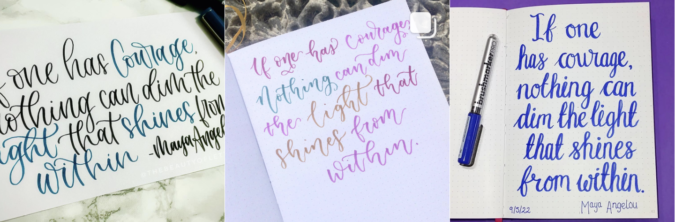 If one has Courage,
nothing can dim the
light that shines from
within -Maya Angelou
If one has Courage,
Nothing can dim
the light that
shines from
within.
If one
has courage,
nothing can
dim the light
that shines
from within.
Maya Angelou
9/5/22